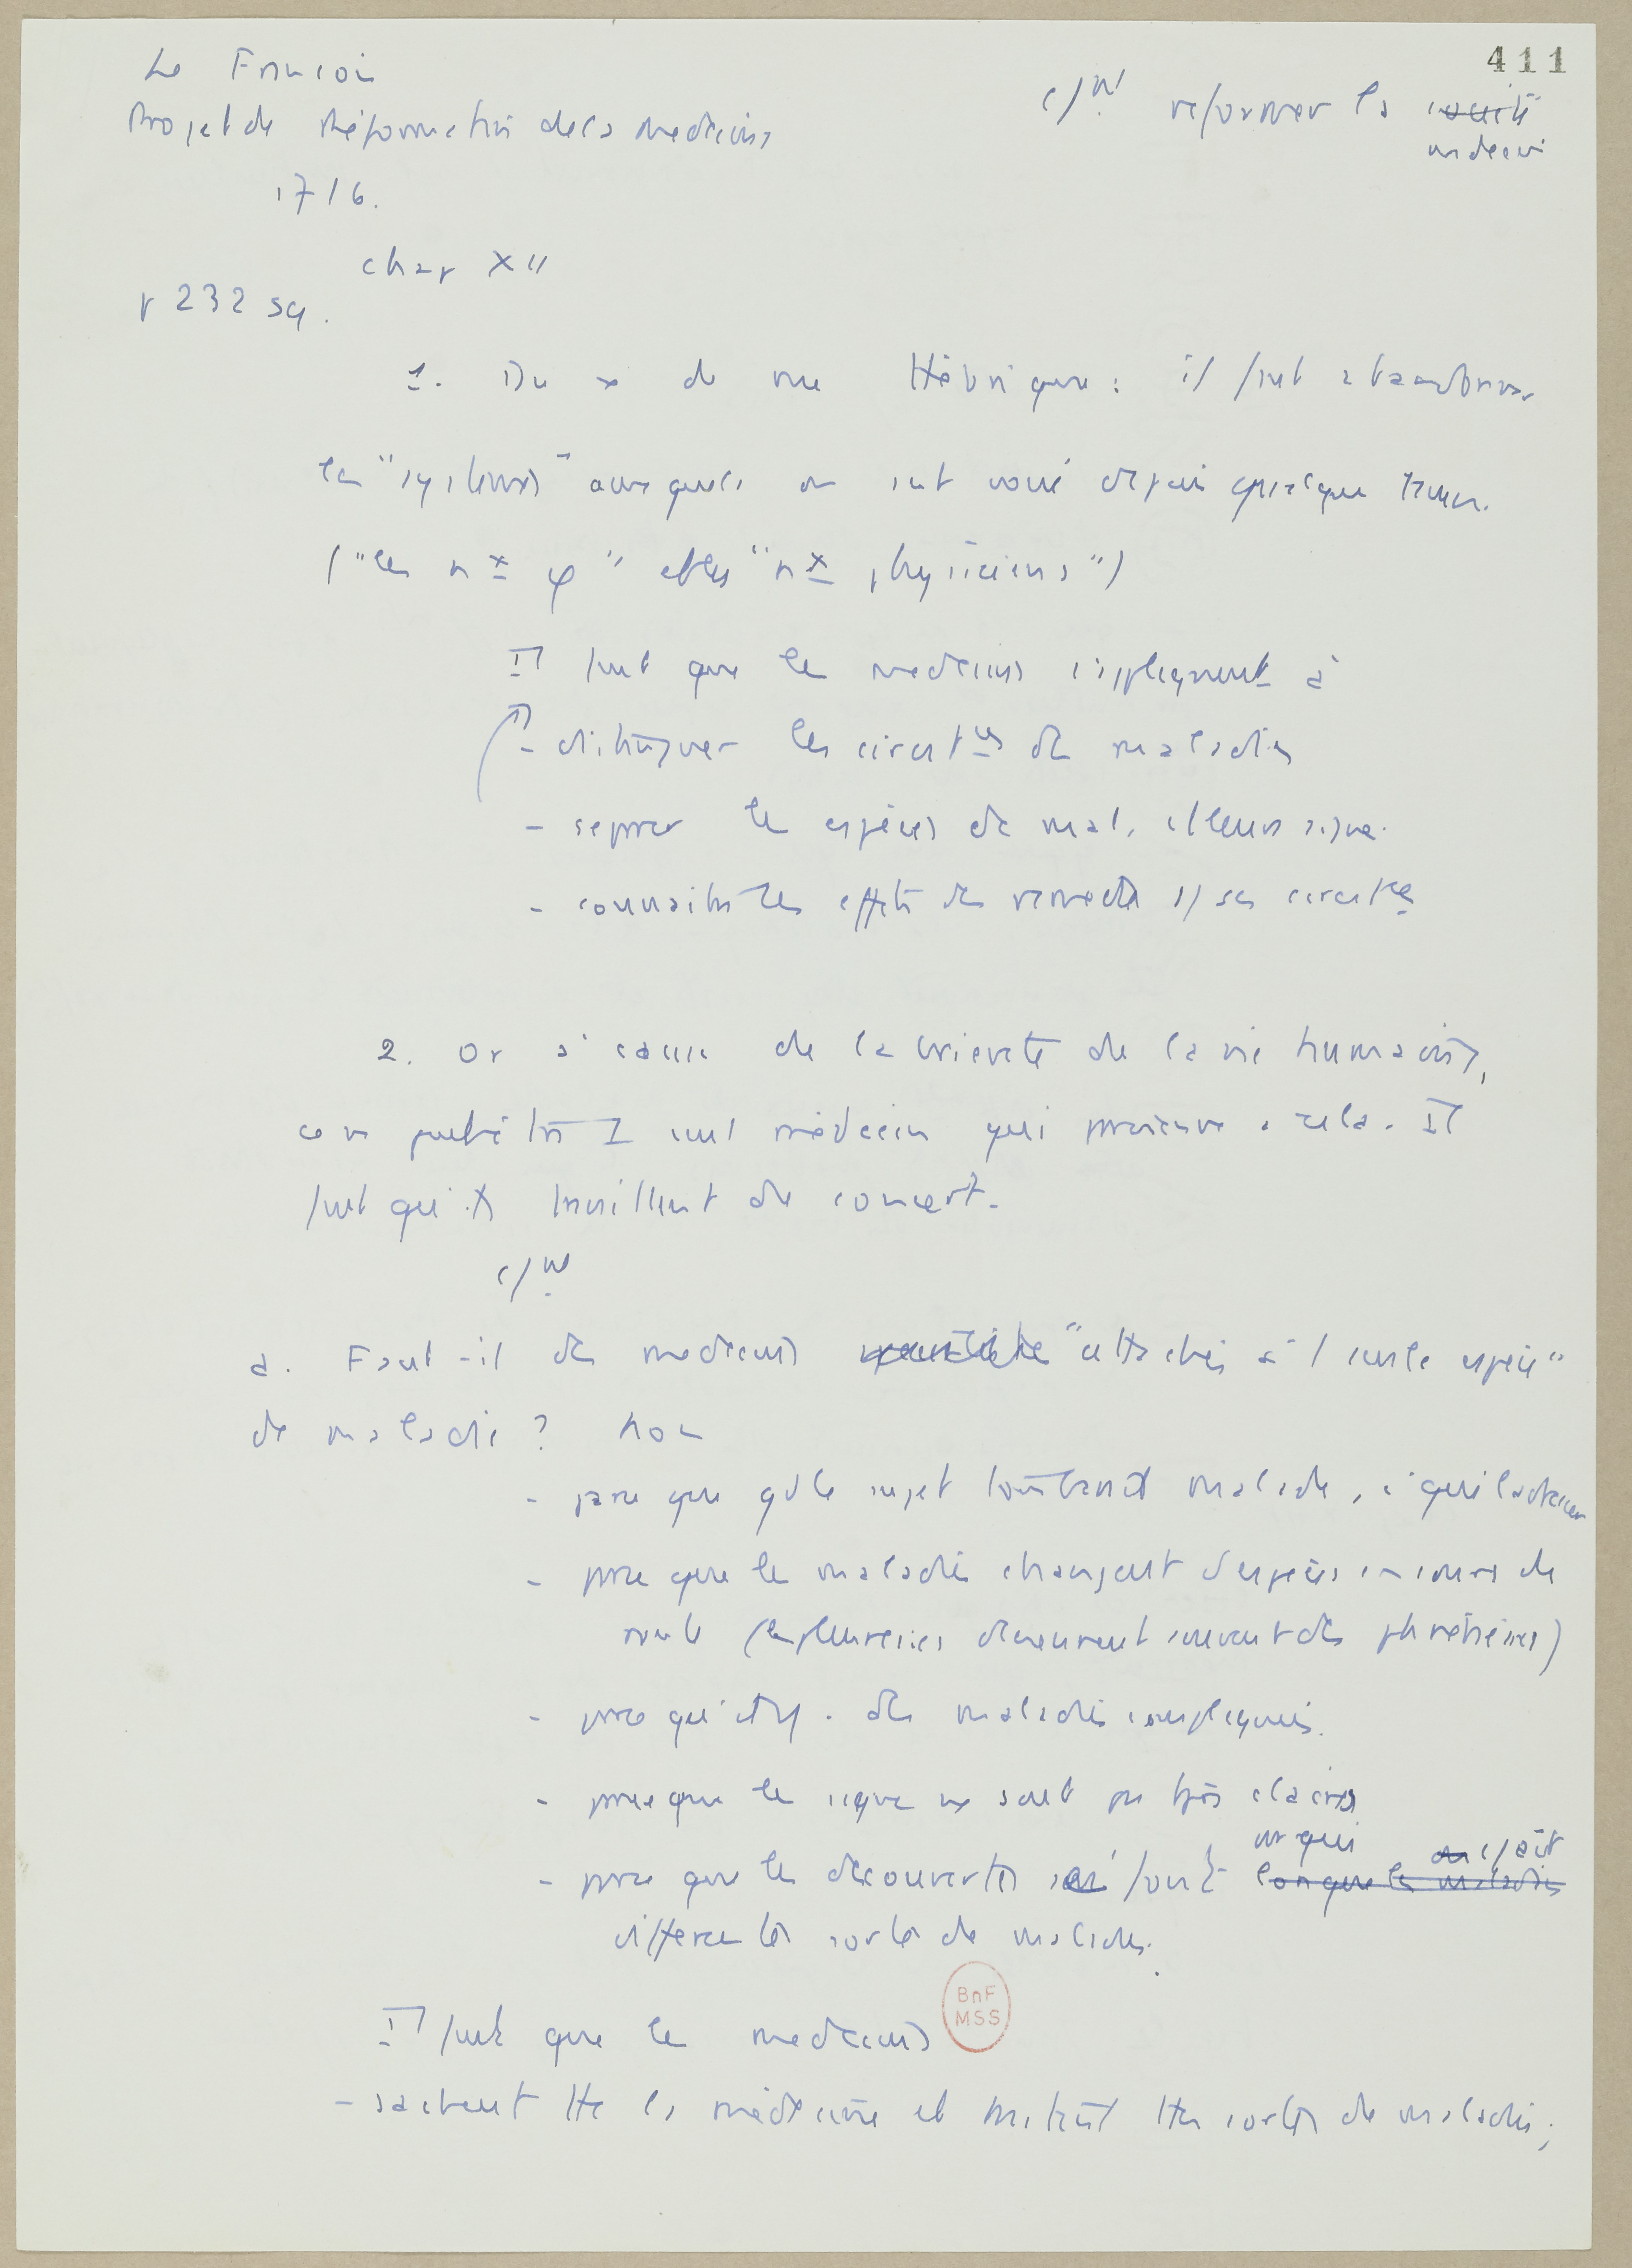 411
Le François
Projet de Réformation de la médecine
1716.
c/mt réformer la société
médecine
chap XII
p 232 sq.
1. Du x de vue théorique : il faut abandonner
les "systèmes" auxquels on s'est voué depuis quelque temps.
("les nx φ" et les "nx physiciens")
Il faut que les médecins s'appliquent à
- distinguer les circstces des maladies
- séparer les espèces de mal. et leurs signes
- connaître les effets des remèdes s/ ces circstces
2. Or à cause de la brièveté de la vie humaine,
ce n' peut être 1 seul médecin qui parvienne à cela. Il
faut qu'ils travaillent de concert.
c/mt
a. Faut-il des médecins "attachés à 1 seule espèce"
de maladie ? Non
- parce que qd le sujet tombant malade, à qui s'adresser
- parce que les maladies changent d'espèces en cours de
route (les pleurésies deviennent souvent des phrénésies)
- parce qu'il y a des maladies compliquées.
- parce que les signes ne sont pas très clairs
- parce que les découvertes se font lorsque les maladies
sur qui on c/aît
différentes sortes de malades.
Il faut que les médecins
BnF
MSS
- sachent tte la médecine et traitent ttes sortes de maladies ;